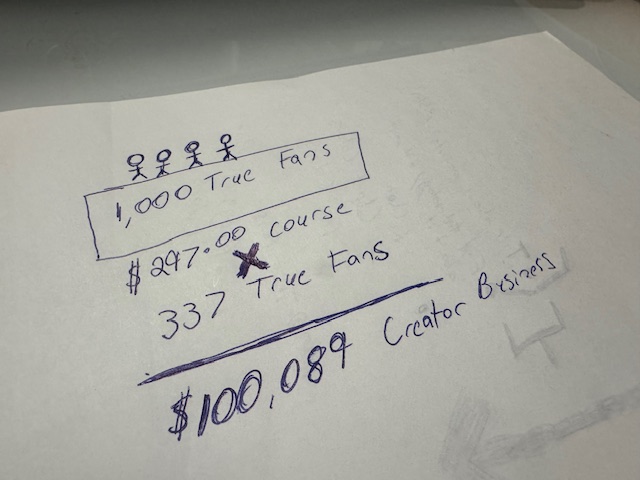 1,000 True Fans
$297.00 course
X
337 True Fans
$100,089 Creator Business